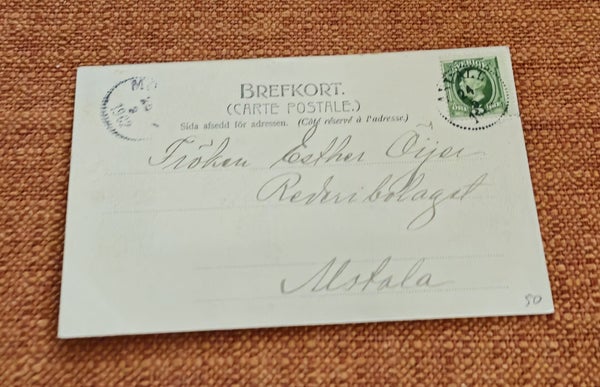 BREFKORT.
(CARTE POSTALE.)
Sida afsedd för adressen. (Côté réservé à l'adresse.)
Fröken Esther Öijer
Rederibolaget
Motala
1902
50